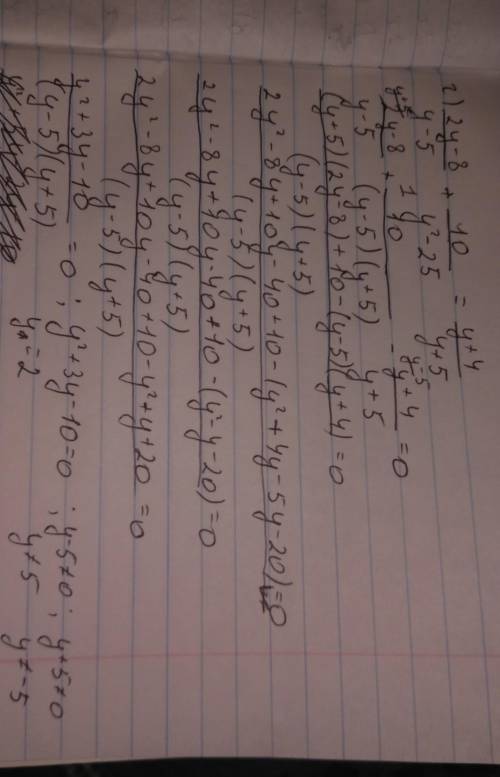 2) (2y-8)/(y-5) + 10/(y²-25) = (y+4)/(y+5)
(2y-8)/(y-5) + 10/((y-5)(y+5)) - (y+4)/(y+5) = 0
((y+5)(2y-8)+10-(y-5)(y+4))/((y-5)(y+5)) = 0
(2y²-8y+10y-40+10-(y²+4y-5y-20))/((y-5)(y+5)) = 0
(2y²-8y+10y-40+10-(y²-y-20))/((y-5)(y+5)) = 0
(2y²-8y+10y-40+10-y²+y+20)/((y-5)(y+5)) = 0
(y²+3y-10)/((y-5)(y+5)) = 0; y²+3y-10=0; y-5≠0; y+5≠0
y=2 y≠5 y≠-5